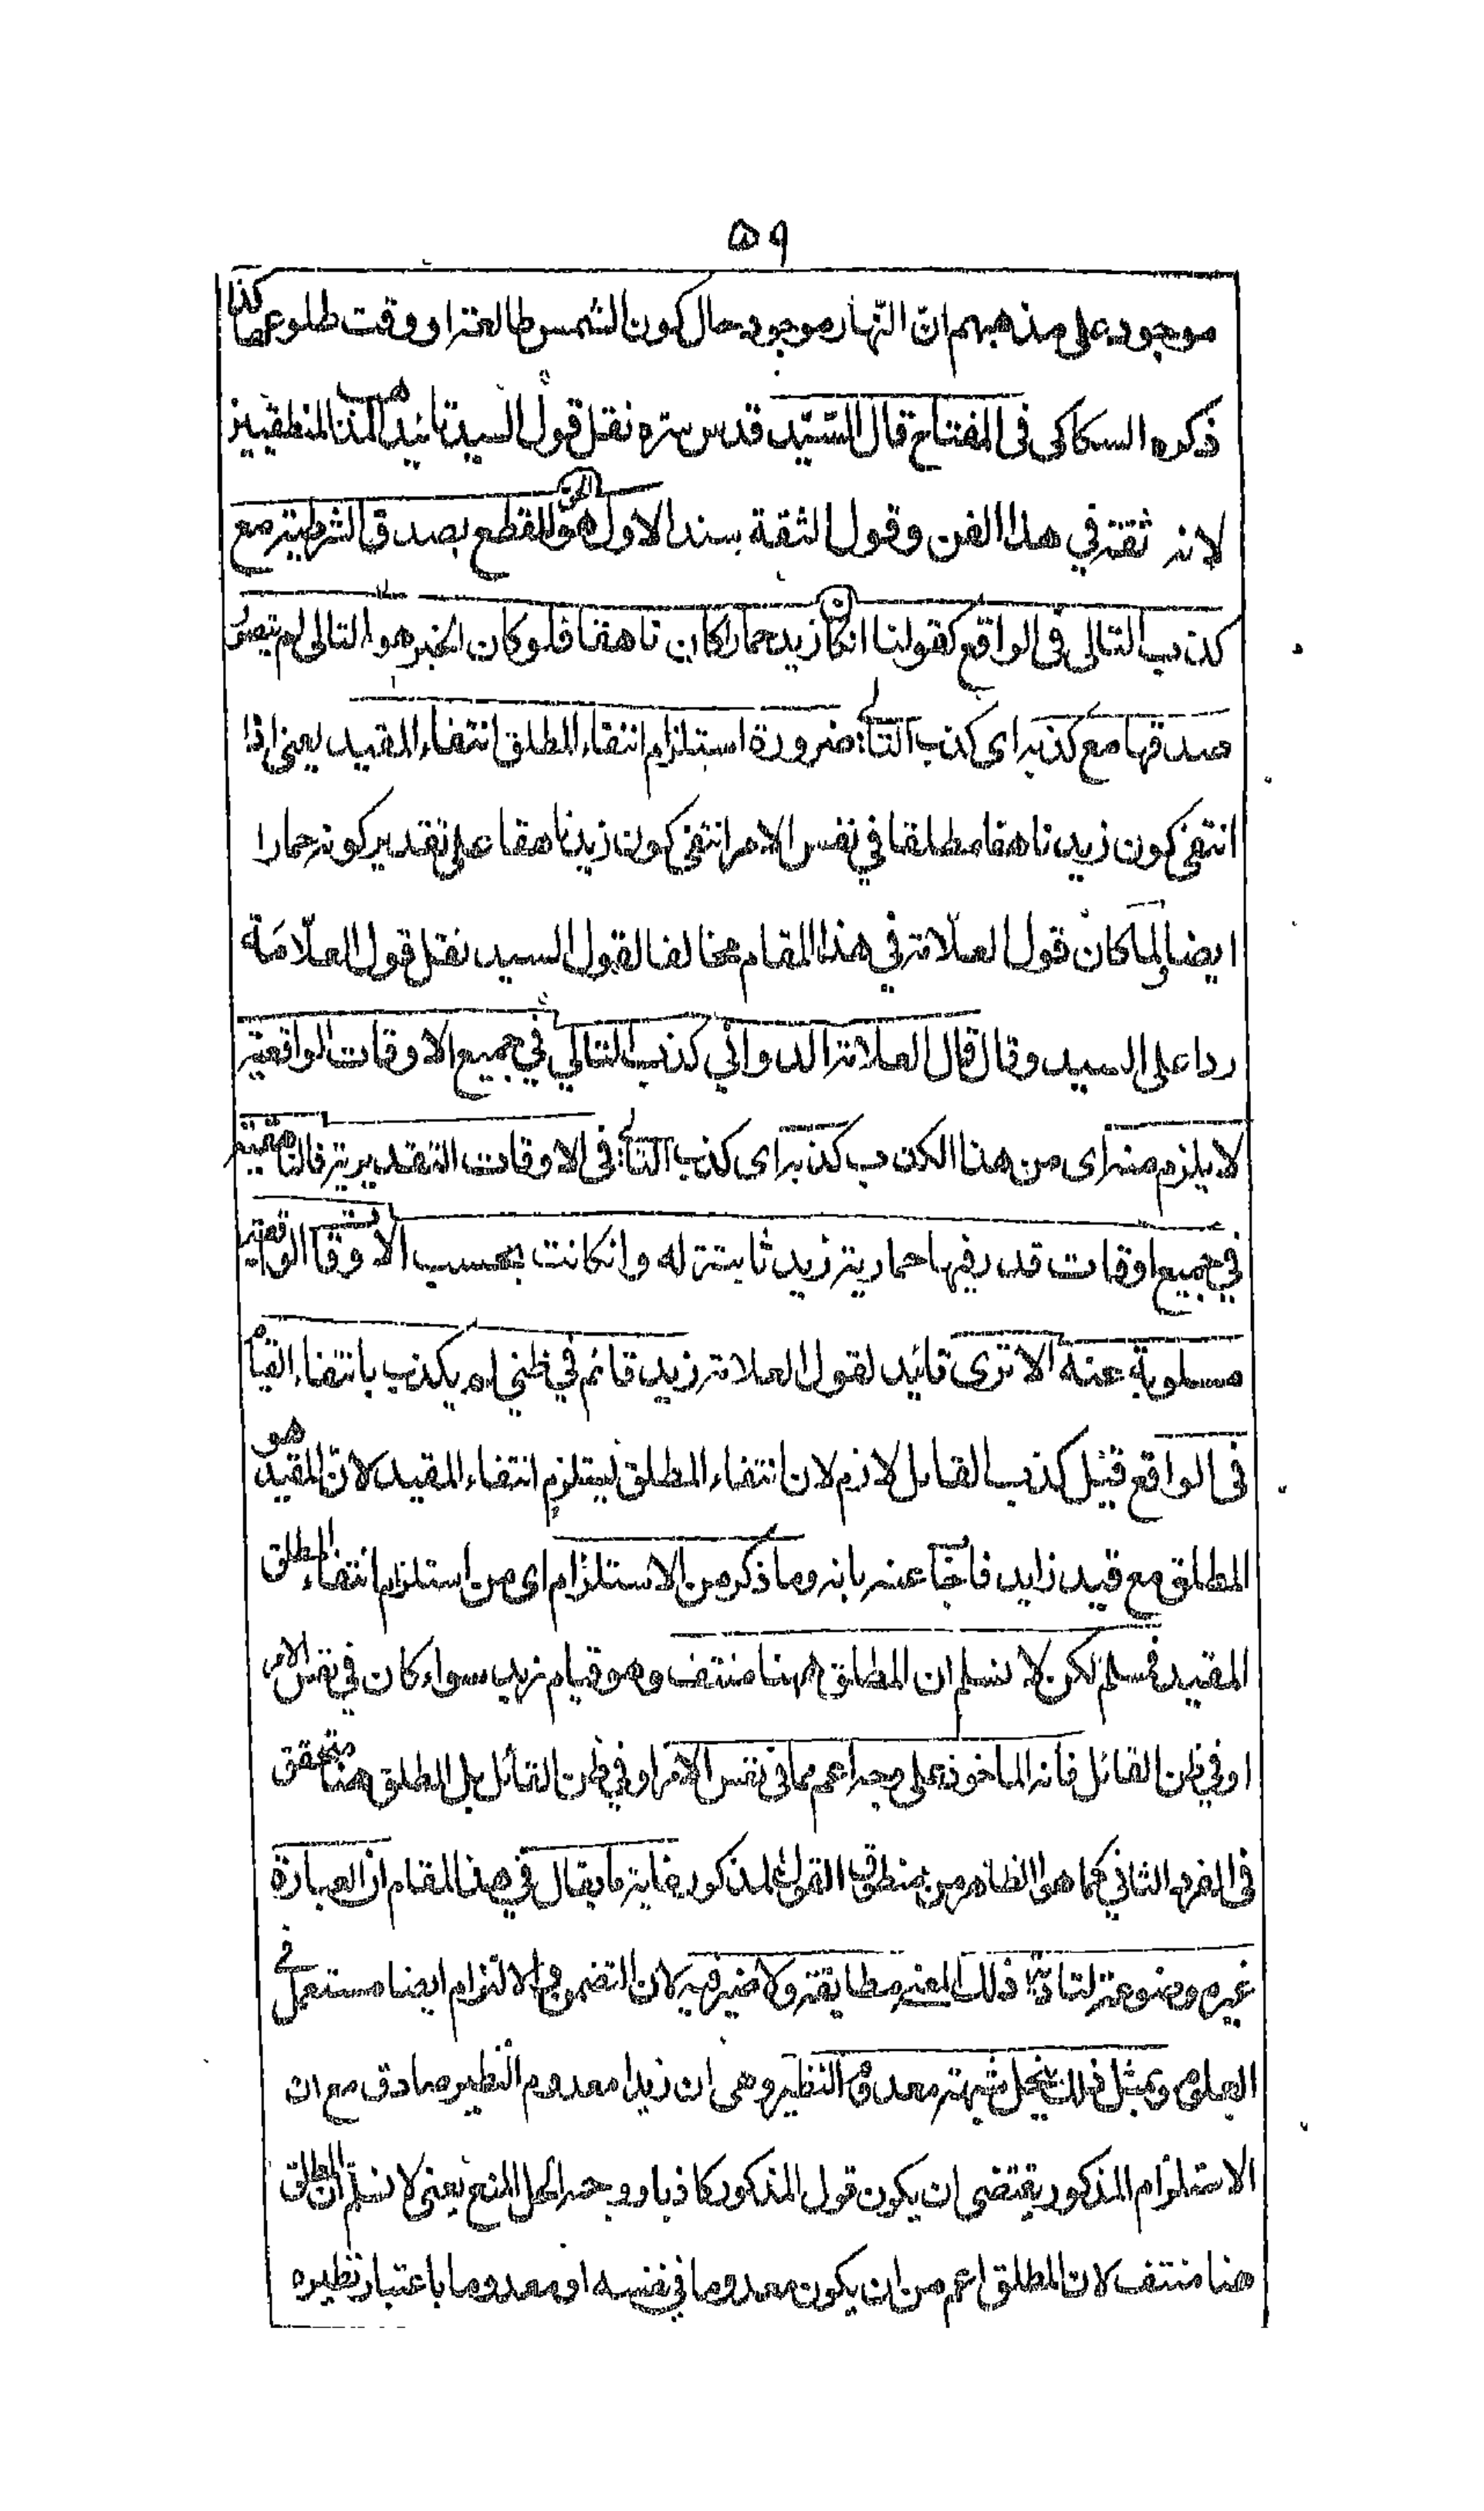 ٥٩
موجود على مذهبهم ان النهار موجود حال كون الشمس طالعة او وقت طلوعها كذا
ذكره السكاكى فى المفتاح قال السّيّد قدس سره نقل قول السيد تائيدا لمذهب المنطقيين
لانه ثقة في هذا الفن وقول الثقة سند الاول هو الحق للقطع بصدق الشرطية مع
كذب التالى فى الواقع كقولنا انكان زيد حمارا كان ناهقا فلو كان الخبر هو التالى لم يتصور
صدقها مع كذبه اى كذب التالي ضرورة استلزام انتفاء المطلق انتفاء المقيد يعنى اذا
انتفى كون زيد ناهقا مطلقا في نفس الامر انتفى كون زيد ناهقا على تقدير كونه حمارا
ايضا ولما كان قول العلامة في هذا المقام مخالفا لقول السيد نقل قول العلّامَة
ردا على السيد وقال قال العلامة الدواني كذب التالي في جميع الاوقات الواقعية
لا يلزم منه اى من هذا الكذب كذبه اى كذب التالي فى الاوقات التقديرية فالناهقية
في جميع اوقات قدر فيها حمارية زيد ثابتة له وانكانت بحسب الاوقات الواقعية
مسلوبة عنه الا ترى تائيد لقول العلامة زيد قائم في ظني لم يكذب بانتفاء القيام
فى الواقع قيل كذب القائل لازم لان انتفاء المطلق يستلزم انتفاء المقيد لان المقيد هو
المطلق مع قيد زايد فاجاب عنه بانه وما ذكر من الاستلزام اى من استلزام انتفاء المطلق
المقيد فمسلم لكن لا نسلم ان المطلق ههنا منتف وهو قيام زيد سواء كان في نفس الامر
او في ظن القائل فانه الماخوذ على وجه اعم مما فى نفس الامر او في ظن القائل بل المطلق ههنا متحقق
فى الفرد الثاني كما هو الظاهر من منطوق القول المذكور غاية ما يقال في هذا المقام ان العبارة
غير موضوعة لتادية ذلك المعنى مطابقة ولا ضير فيه لان التضمن والالتزام ايضا مستعمل في
العلوم وبمثل ذلك ينحل شبهة معدوم النظير وهى ان زيدا معدوم النظير صادق مع ان
الاستلزام المذكور يقتضى ان يكون قول المذكور كاذبا ووجه الحل المنع يعنى لا نسلم ان المطلق
هنا منتف لان المطلق اعم من ان يكون معدوما في نفسه او معدوما باعتبار نظيره